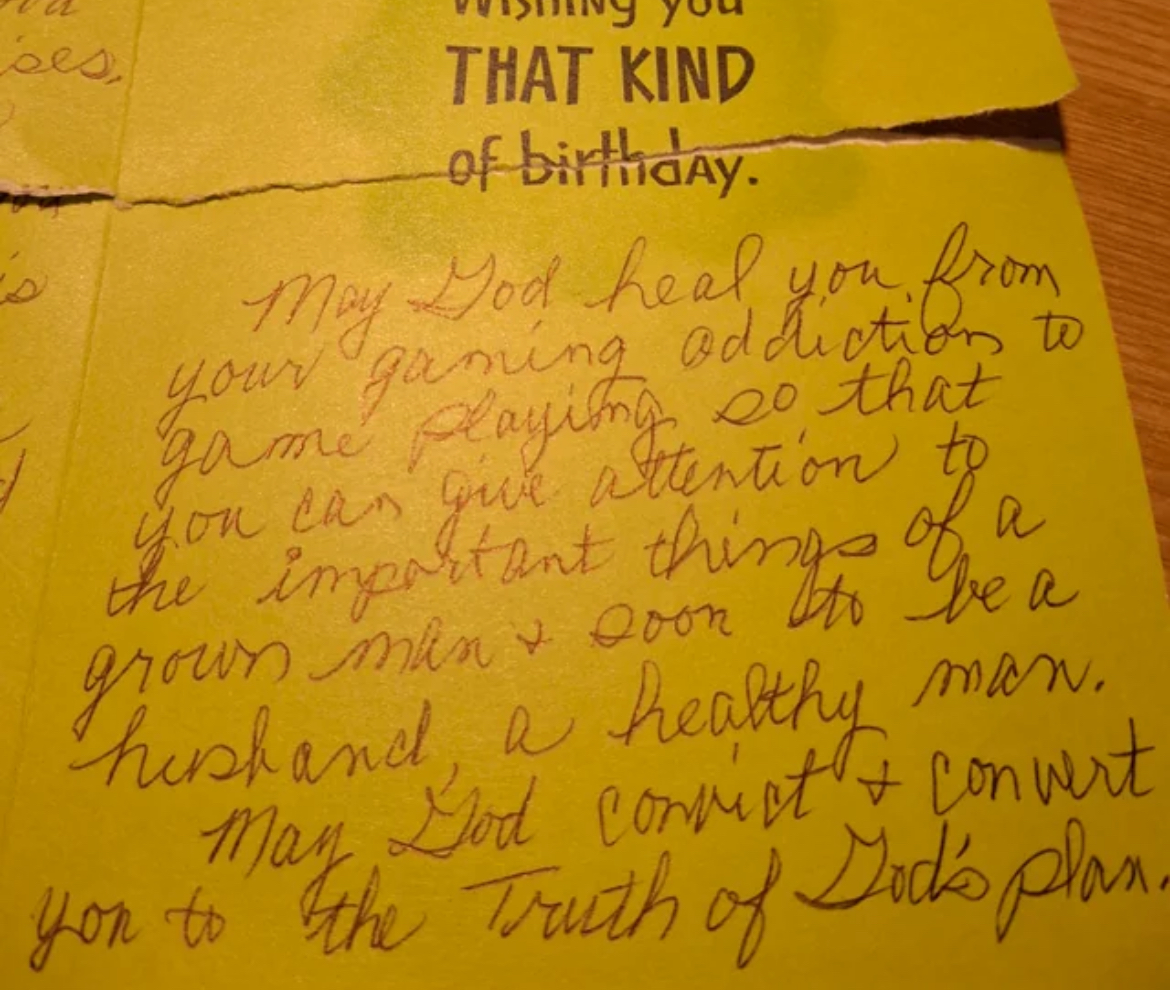 Wishing you
THAT KIND
of birthday.
ises,
is
May God heal you from
your gaming addiction to
game playing so that
you can give attention to
the important things of a
grown man & soon to be a
husband, a healthy man.
May God convict & convert
you to the Truth of God's plan.